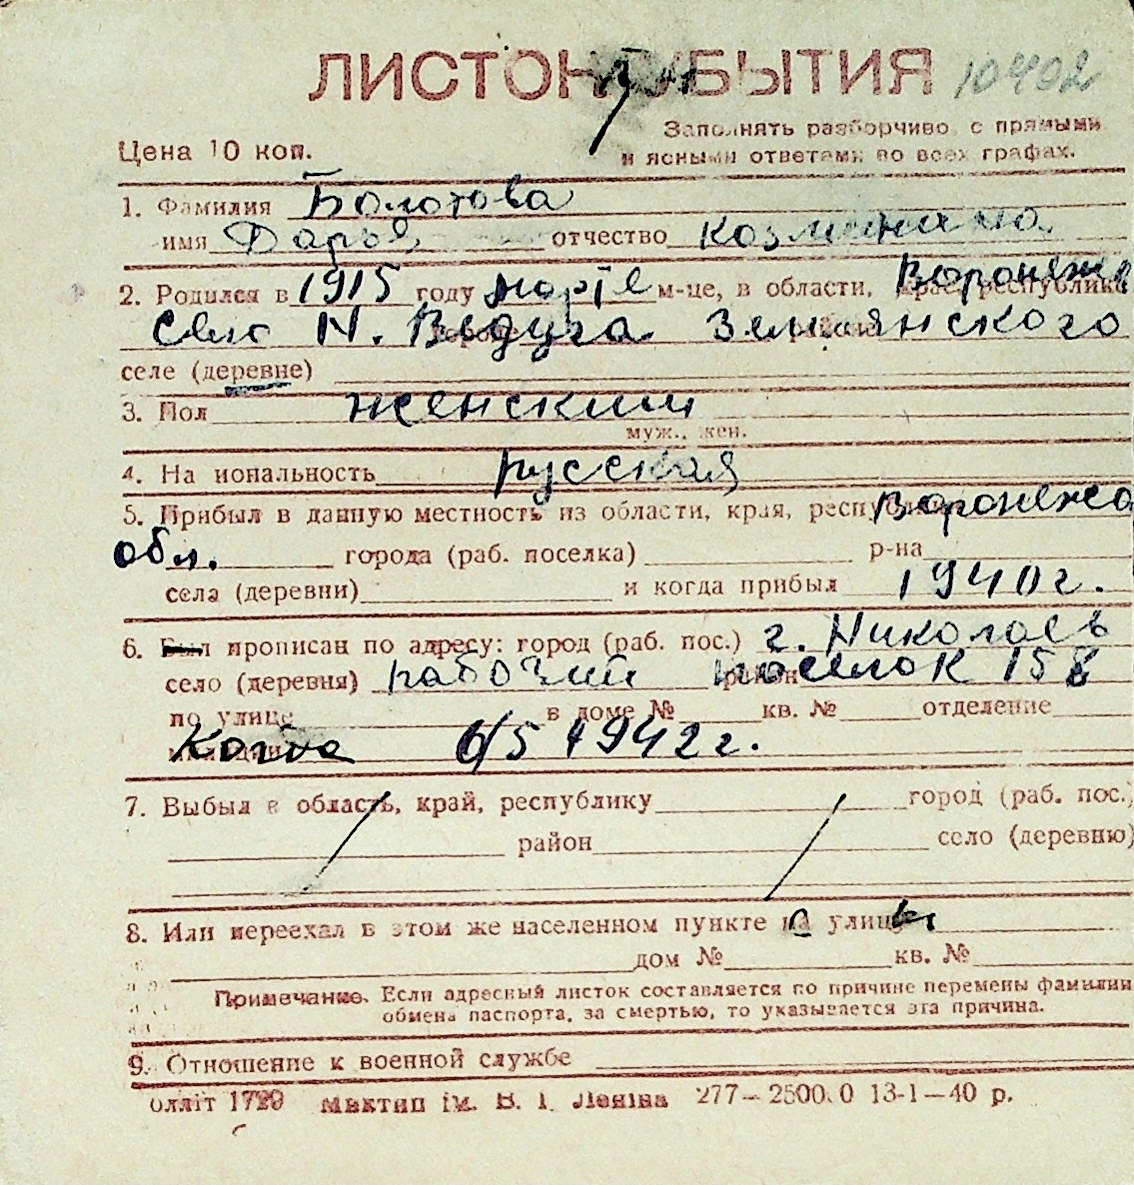 ЛИСТОК УБЫТИЯ 10402
Заполнять разборчиво, с прямыми
Цена 10 коп. и ясными ответами во всех графах.
1. Фамилия Болотова
имя Дарья отчество Козминична
2. Родился в 1915 году марте м-це, в области, края, республики Воронеже
село Н. Ведуга Землянского
селе (деревне)
3. Пол женский
муж., жен.
4. На иональность русская
5. Прибыл в данную местность из области, края, республики Воронежа
обл. города (раб. поселка) р-на
села (деревни) и когда прибыл 1940г.
6. Был прописан по адресу: город (раб. пос.) г. Николаев
село (деревня) рабочий район поселок 158
по улице в доме № кв. № отделение
милиции Когда 6/5 1942г.
7. Выбыл в область, край, республику город (раб. пос.)
район село (деревню)
8. Или переехал в этом же населенном пункте на улицы
дом № кв. №
Примечание. Если адресный листок составляется по причине перемены фамилии
обмена паспорта, за смертью, то указывается эта причина.
9. Отношение к военной службе
олліт 1729 Миктип ім. В. І. Леніна 277—25000 13-1—40 р.